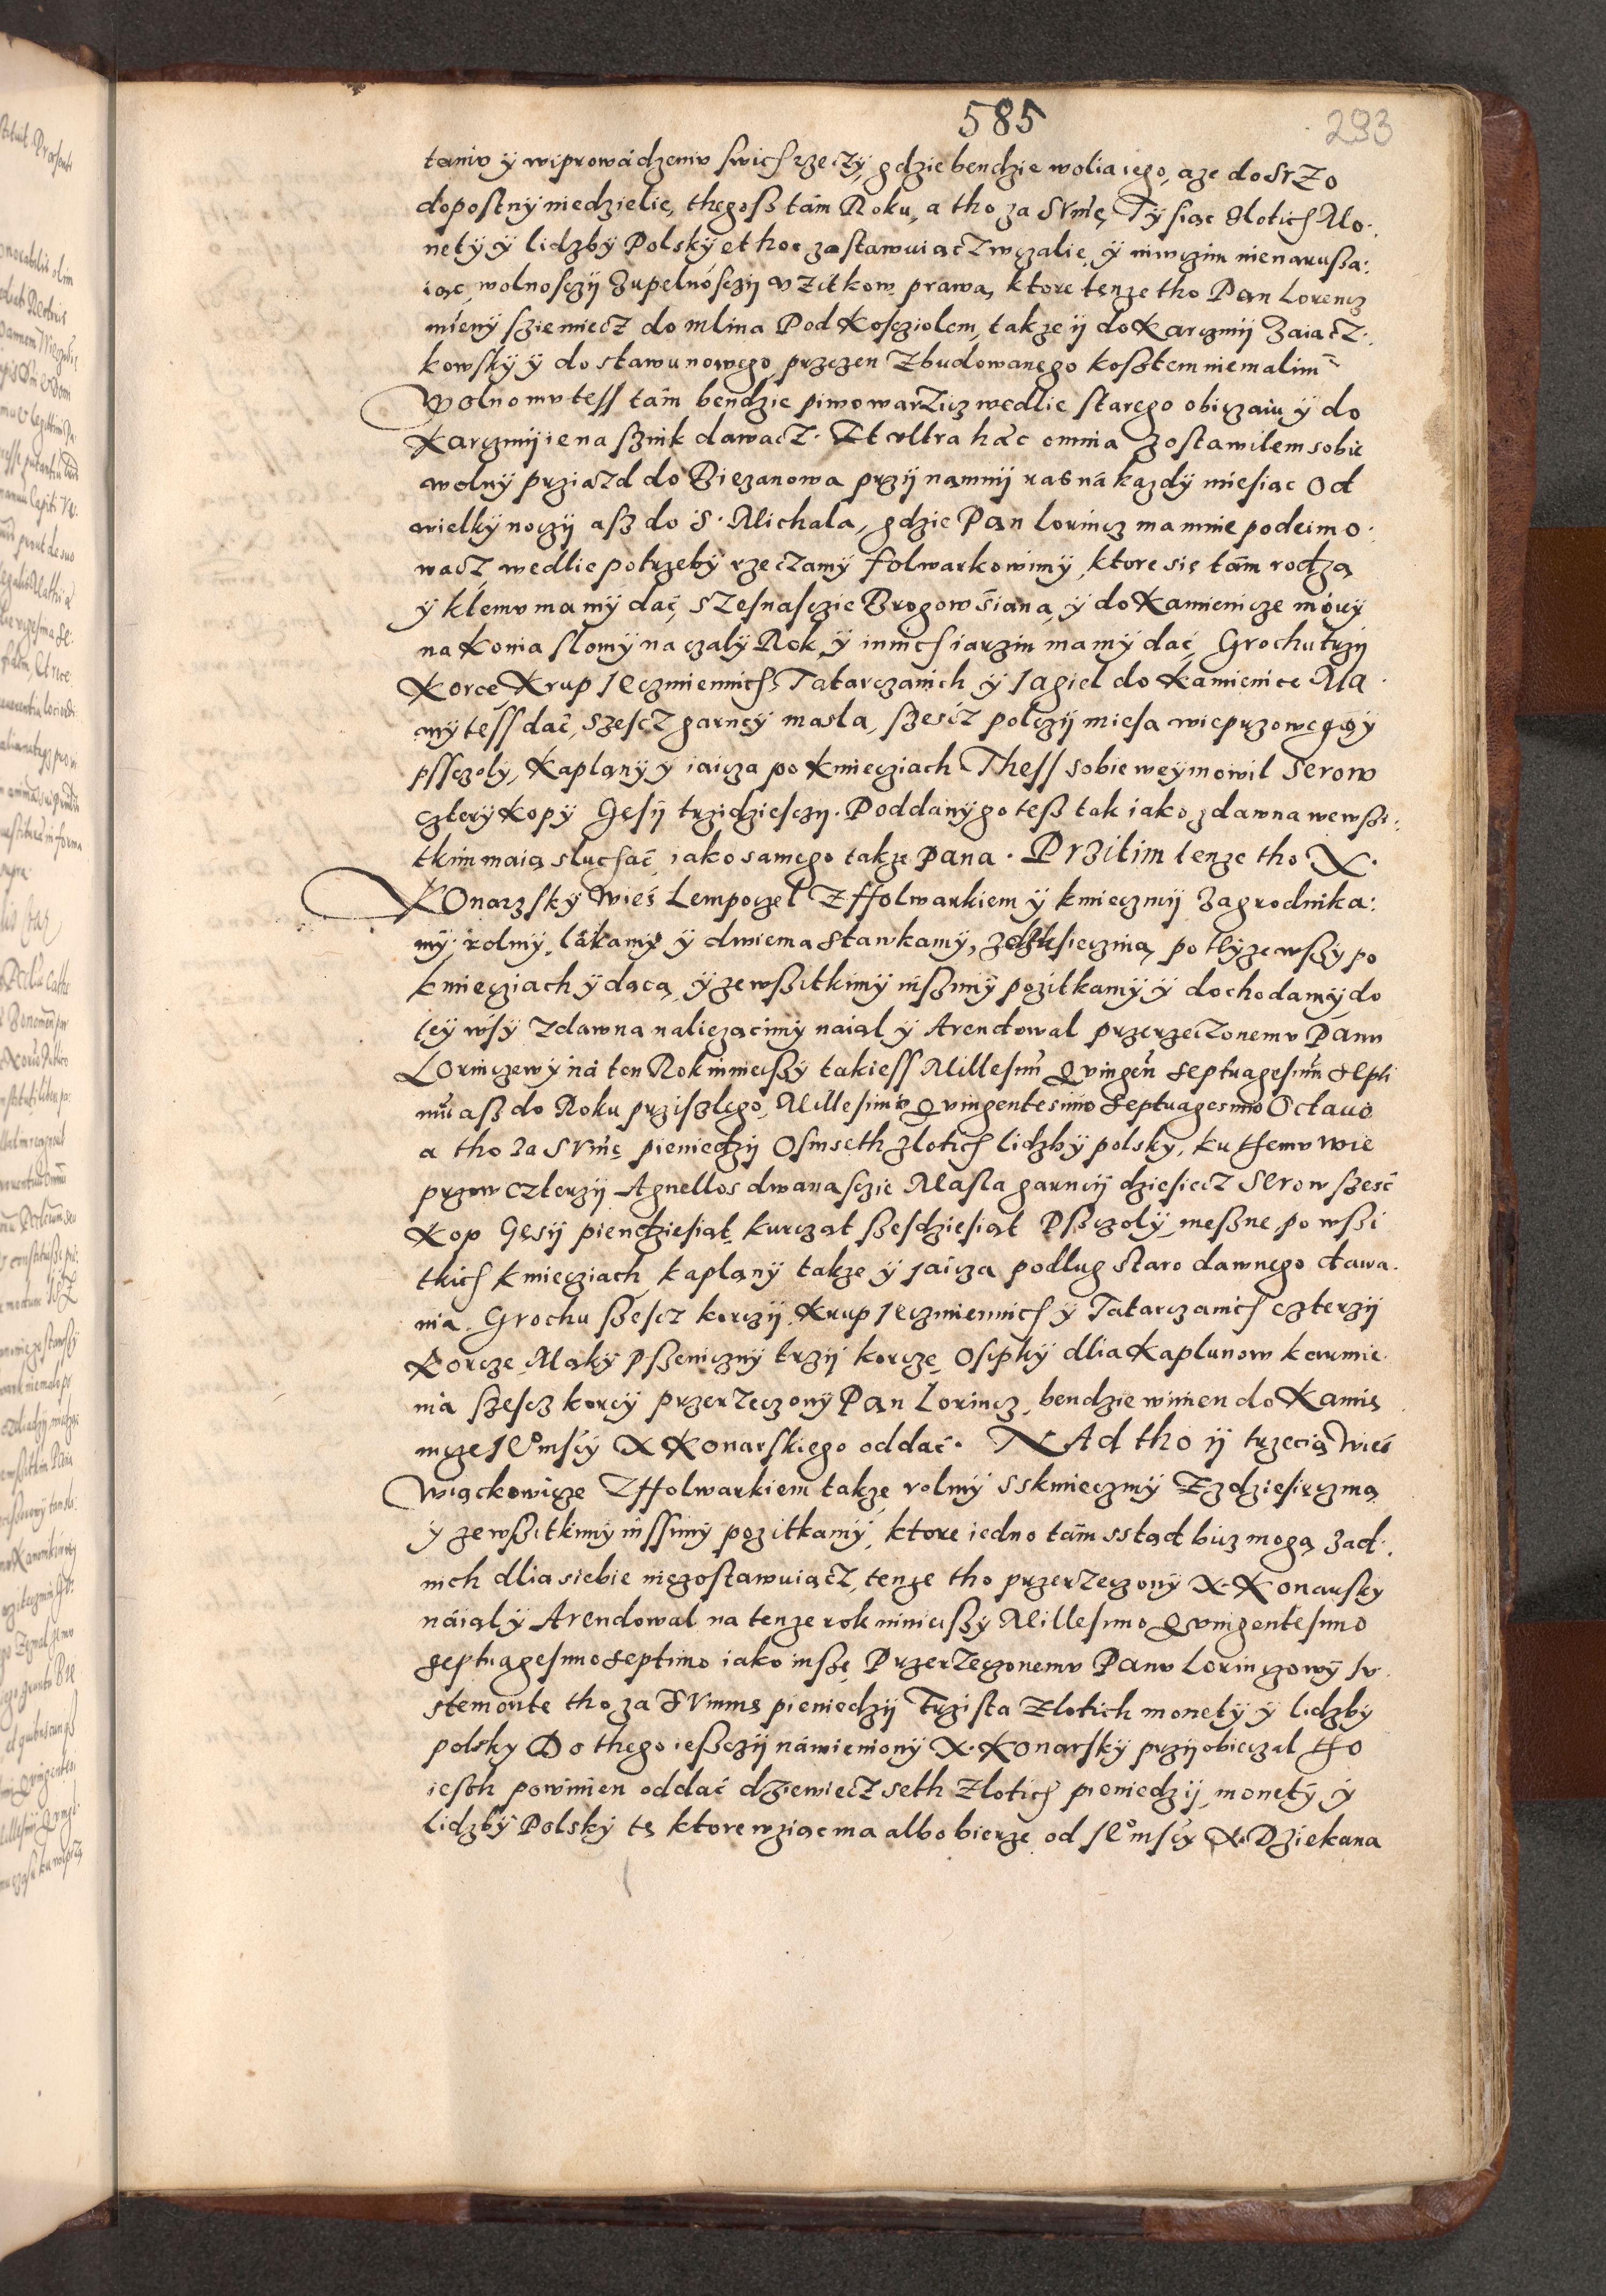 585
293
taniu ÿ wiprowadzeniu swich rzeczÿ, gdzie bendzie wolia iego, aze do Srzo
dopostnÿ niedzielie, thegoß tam Roku, a tho za Sum̃ę, Tÿsiąc złotich Mo:
netÿ ÿ lidzbÿ Polskÿ et hoc zostawuiącz wczalie, ÿ niwczim nienarußa:
iąc, wolnosczÿ Zupelnosczÿ vzitkow prawa, ktore tenze tho Pan Lorencz
mienÿ sziemiecz do mlina Pod Kosczołem, takze ÿ do Karczmÿ Zaiącz:
kowskÿ ÿ do stawu nowego, przezen Zbudowanego kosztem niemalim
Wolno mu tess tam bendzie piwo warzicz wedlie starego obiczaiu ÿ do
Karczmÿ ie na szink dawacz. Et ultra hæc omnia zostawilem sobie
wolnÿ prziazd do Biezanowa przÿnamnÿ ras na kazdÿ miesiac Od
wielkÿnoczÿ asz do S. Michala, gdzie Pan Lorincz ma mnie podeimo:
wacz wedlie potrzebÿ rzeczamÿ folwarkowimÿ, ktore się tam rodzą
ÿ ktemu ma mÿ dać, szesnasczie Brogow siana, ÿ do Kamienicze moiÿ
na konia slomÿ na czalÿ Rok, ÿ innich iarzin ma mÿ dać, Grochu trzÿ
Korce Krup Ieczmiennich, Tatarczanich ÿ Iagiel do Kamienice Ma
mÿ tess dać, szesct garncÿ masla, szescz polczÿ miesa wieprzowego ÿ
pssczolÿ, Kaplanÿ ÿ iaicza po kmiecziach Thess sobie weÿmowil Serow
czterÿ kopÿ Gęsÿ trzidziesczÿ. Poddanÿ go teß tak iako zdawna wewßi:
tkim maią sluchać, iako samego takze Pana. Przitim tenze tho X.
Konarzskÿ Wieś Lempoczel Zffolwarkiem ÿ kmieczmÿ Zagrodnika:
mÿ rolmÿ, lākamÿ ÿ dwiema stawkamÿ, po
kmiecziach ÿdacą, ÿ zewßitkimÿ inßimÿ pozitkamÿ ÿ dochodamÿ do
teÿ wsÿ zdawna naliezacimÿ naiąl ÿ Arendowal przerzeczonemu Panu
Lorinczewÿ na ten Rok ninieißÿ takiess Millesim̃ quingeñ septuagesim̃ septi
mũ aß do Roku prziszlego, Millesimo quingentesimo septuagesimo Octauo
a tho za Sum̃ę pieniedzÿ Osmseth zlotich lidzbÿ polskÿ, ku themu wie
przow czterzÿ Agnellos dwanasczie Masla garncÿ dziesiecz Serow szesć
kop Gęsÿ piendziesiąt kurcząt ßesdziesiąt Pßczolÿ, meßne, po wßi
tkich kmiecziach kaplanÿ takze ÿ iaicza podlug staro dawnego dawa.
nia. Grochu ßescz korczÿ, Krup Ieczmiennich ÿ Tatarczanich czterzÿ
Korcze, Mąkÿ pßenicznÿ trzÿ korcze, Osipkÿ dlia Kaplunow karmie
nia szescz korcÿ przerzeczonÿ Pan Lorincz, bendzie winien do Kamie
nicze Ieᵒmscÿ X Konarskiego oddać. Nad tho ÿ trzecią Wieś
Wiąckowicze Zffolwarkiem takze rolmÿ sskmieczmÿ Zzdziesięczmą
ÿ zewßitkimÿ inssimÿ pozitkamÿ, ktore iedno tam sstąd bicz mogą, Zad:
nich dlia siebie niezostawuiącz, tenze tho przerzeczonÿ X. Konarskÿ
naiąl ÿ Arendowal na tenze rok ninieißÿ Millesimo quingentesimo
septuagesimo septimo iako inße Przerzeczonemu Panu Lorinczowÿ Iu
stemonte tho za Summę pieniedzÿ Trzista Zlotich monetÿ ÿ lidzbÿ
polskÿ Do thego ießczÿ namienionÿ X. Konarskÿ przÿobieczal tho
iesth powinien oddać dziewiecz seth Zlotich pieniedzÿ, monetÿ ÿ
lidzbÿ Polskÿ tę ktore wziąc ma albo bierze od Ieᵒmsćÿ X. Dziekana